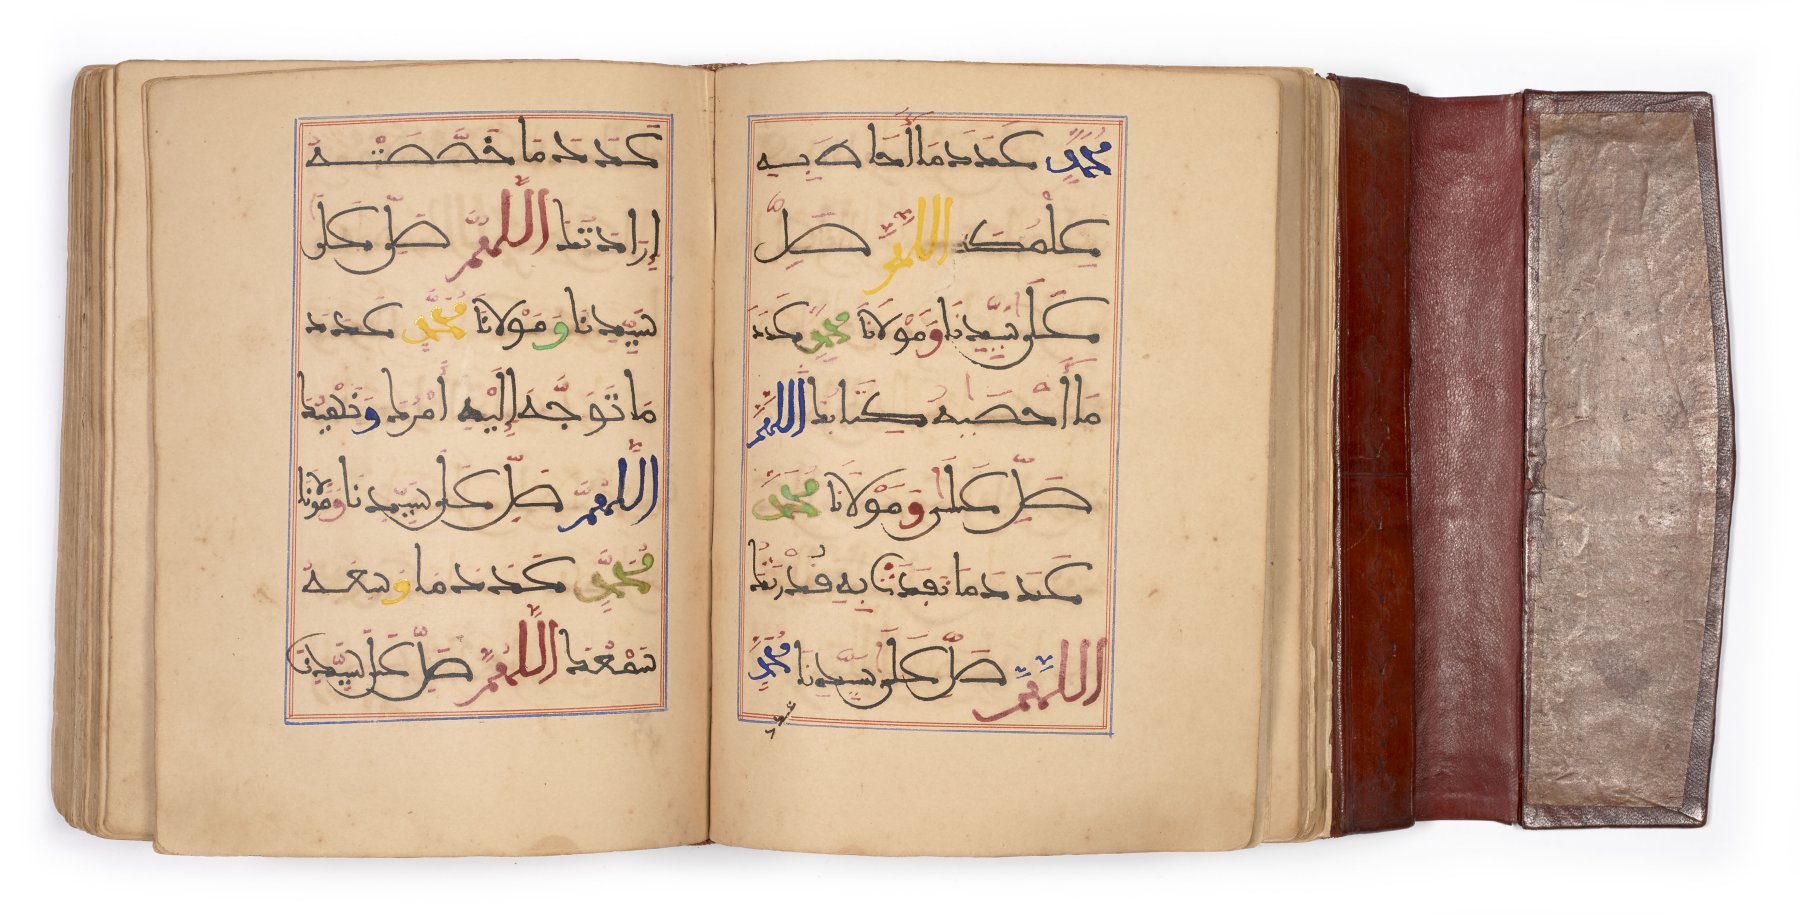 مُحَمَّدٍ عَدَدَ مَا أَحَاطَ بِهِ
عِلْمُكَ اللَّهُمَّ صَلِّ
عَلَى سَيِّدِنَا وَمَوْلَانَا مُحَمَّدٍ عَدَدَ
مَا أَحْصَاهُ كِتَابُكَ اللَّهُمَّ
صَلِّ عَلَى وَمَوْلَانَا مُحَمَّدٍ
عَدَدَ مَا نَفَذَتْ بِهِ قُدْرَتُكَ
اللَّهُمَّ صَلِّ عَلَى سَيِّدِنَا مُحَمَّدٍ
عدد
عَدَدَ مَا خَصَّصَتْهُ
إِرَادَتُكَ اللَّهُمَّ صَلِّ عَلَى
سَيِّدِنَا وَمَوْلَانَا مُحَمَّدٍ عَدَدَ
مَا تَوَجَّهَ إِلَيْهِ أَمْرُكَ وَنَهْيُكَ
اللَّهُمَّ صَلِّ عَلَى سَيِّدِنَا وَمَوْلَانَا
مُحَمَّدٍ عَدَدَ مَا وَسِعَهُ
سَمْعُكَ اللَّهُمَّ صَلِّ عَلَى سَيِّدِنَا